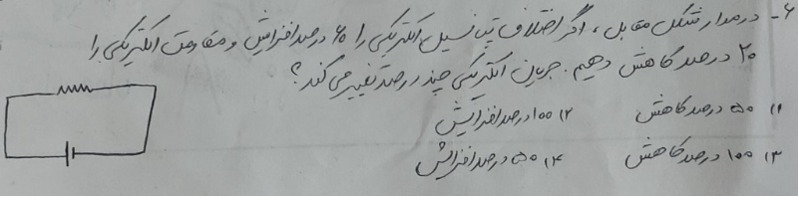 ۶- در مدار شکل مقابل، اگر اختلاف پتانسیل الکتریکی را ۶۰ درصد افزایش و مقاومت الکتریکی را
۲۰ درصد کاهش دهیم. جریان الکتریکی چند درصد تغییر می کند؟
۱) ۵۰ درصد کاهش ۲) ۱۰۰ درصد افزایش
۳) ۱۰۰ درصد کاهش ۴) ۵۰ درصد افزایش